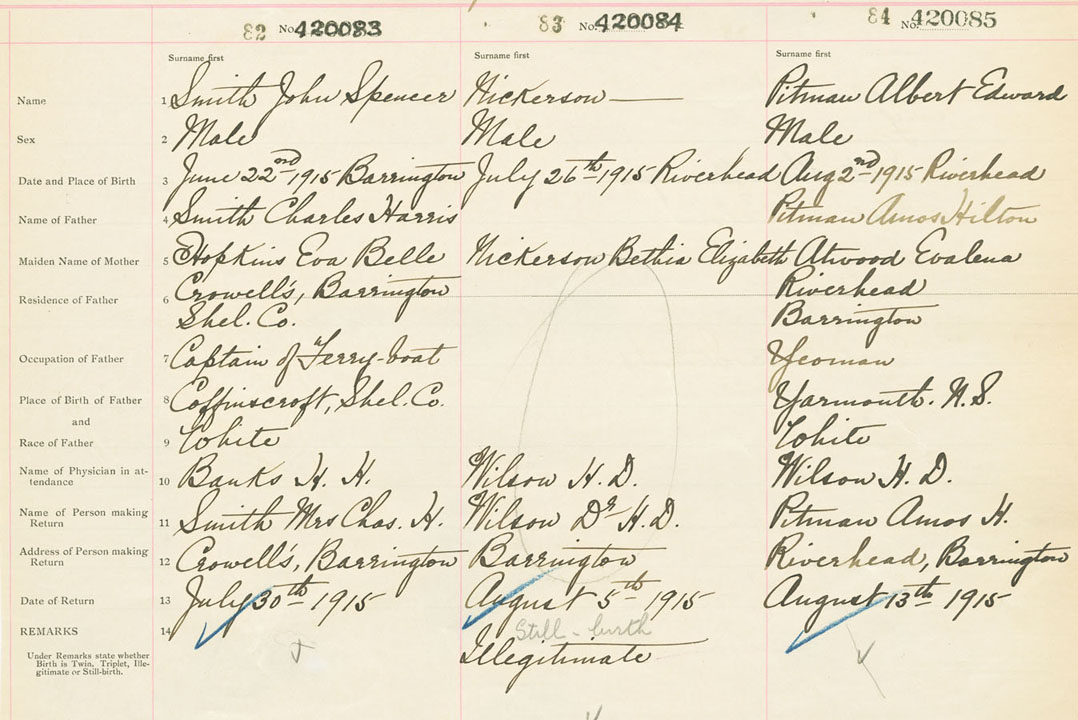 82 No. 420083 83 No. 420084 84 No. 420085
Surname first Surname first Surname first
Name 1 Smith John Spencer Nickerson — Pitman Albert Edward
Sex 2 Male Male Male
Date and Place of Birth 3 June 22nd 1915 Barrington July 26th 1915 Riverhead Aug 2nd 1915 Riverhead
Name of Father 4 Smith Charles Harris Pitman Amos Hilton
Maiden Name of Mother 5 Hopkins Eva Belle Nickerson Bethia Elizabeth Atwood Evalena
Residence of Father 6 Crowell's, Barrington Riverhead
Shel. Co. Barrington
Occupation of Father 7 Captain of Ferry-boat Yeoman
Place of Birth of Father 8 Coffinscroft, Shel. Co. Yarmouth. N.S.
and
Race of Father 9 White White
Name of Physician in at-
tendance 10 Banks H. H. Wilson H. D. Wilson H. D.
Name of Person making
Return 11 Smith Mrs Chas. H. Wilson Dr H. D. Pitman Amos H.
Address of Person making
Return 12 Crowell's, Barrington Barrington Riverhead, Barrington
Date of Return 13 July 30th 1915 August 5th 1915 August 13th 1915
REMARKS 14 Still-birth
Under Remarks state whether
Birth is Twin, Triplet, Ille-
gitimate or Still-birth.
Illegitimate